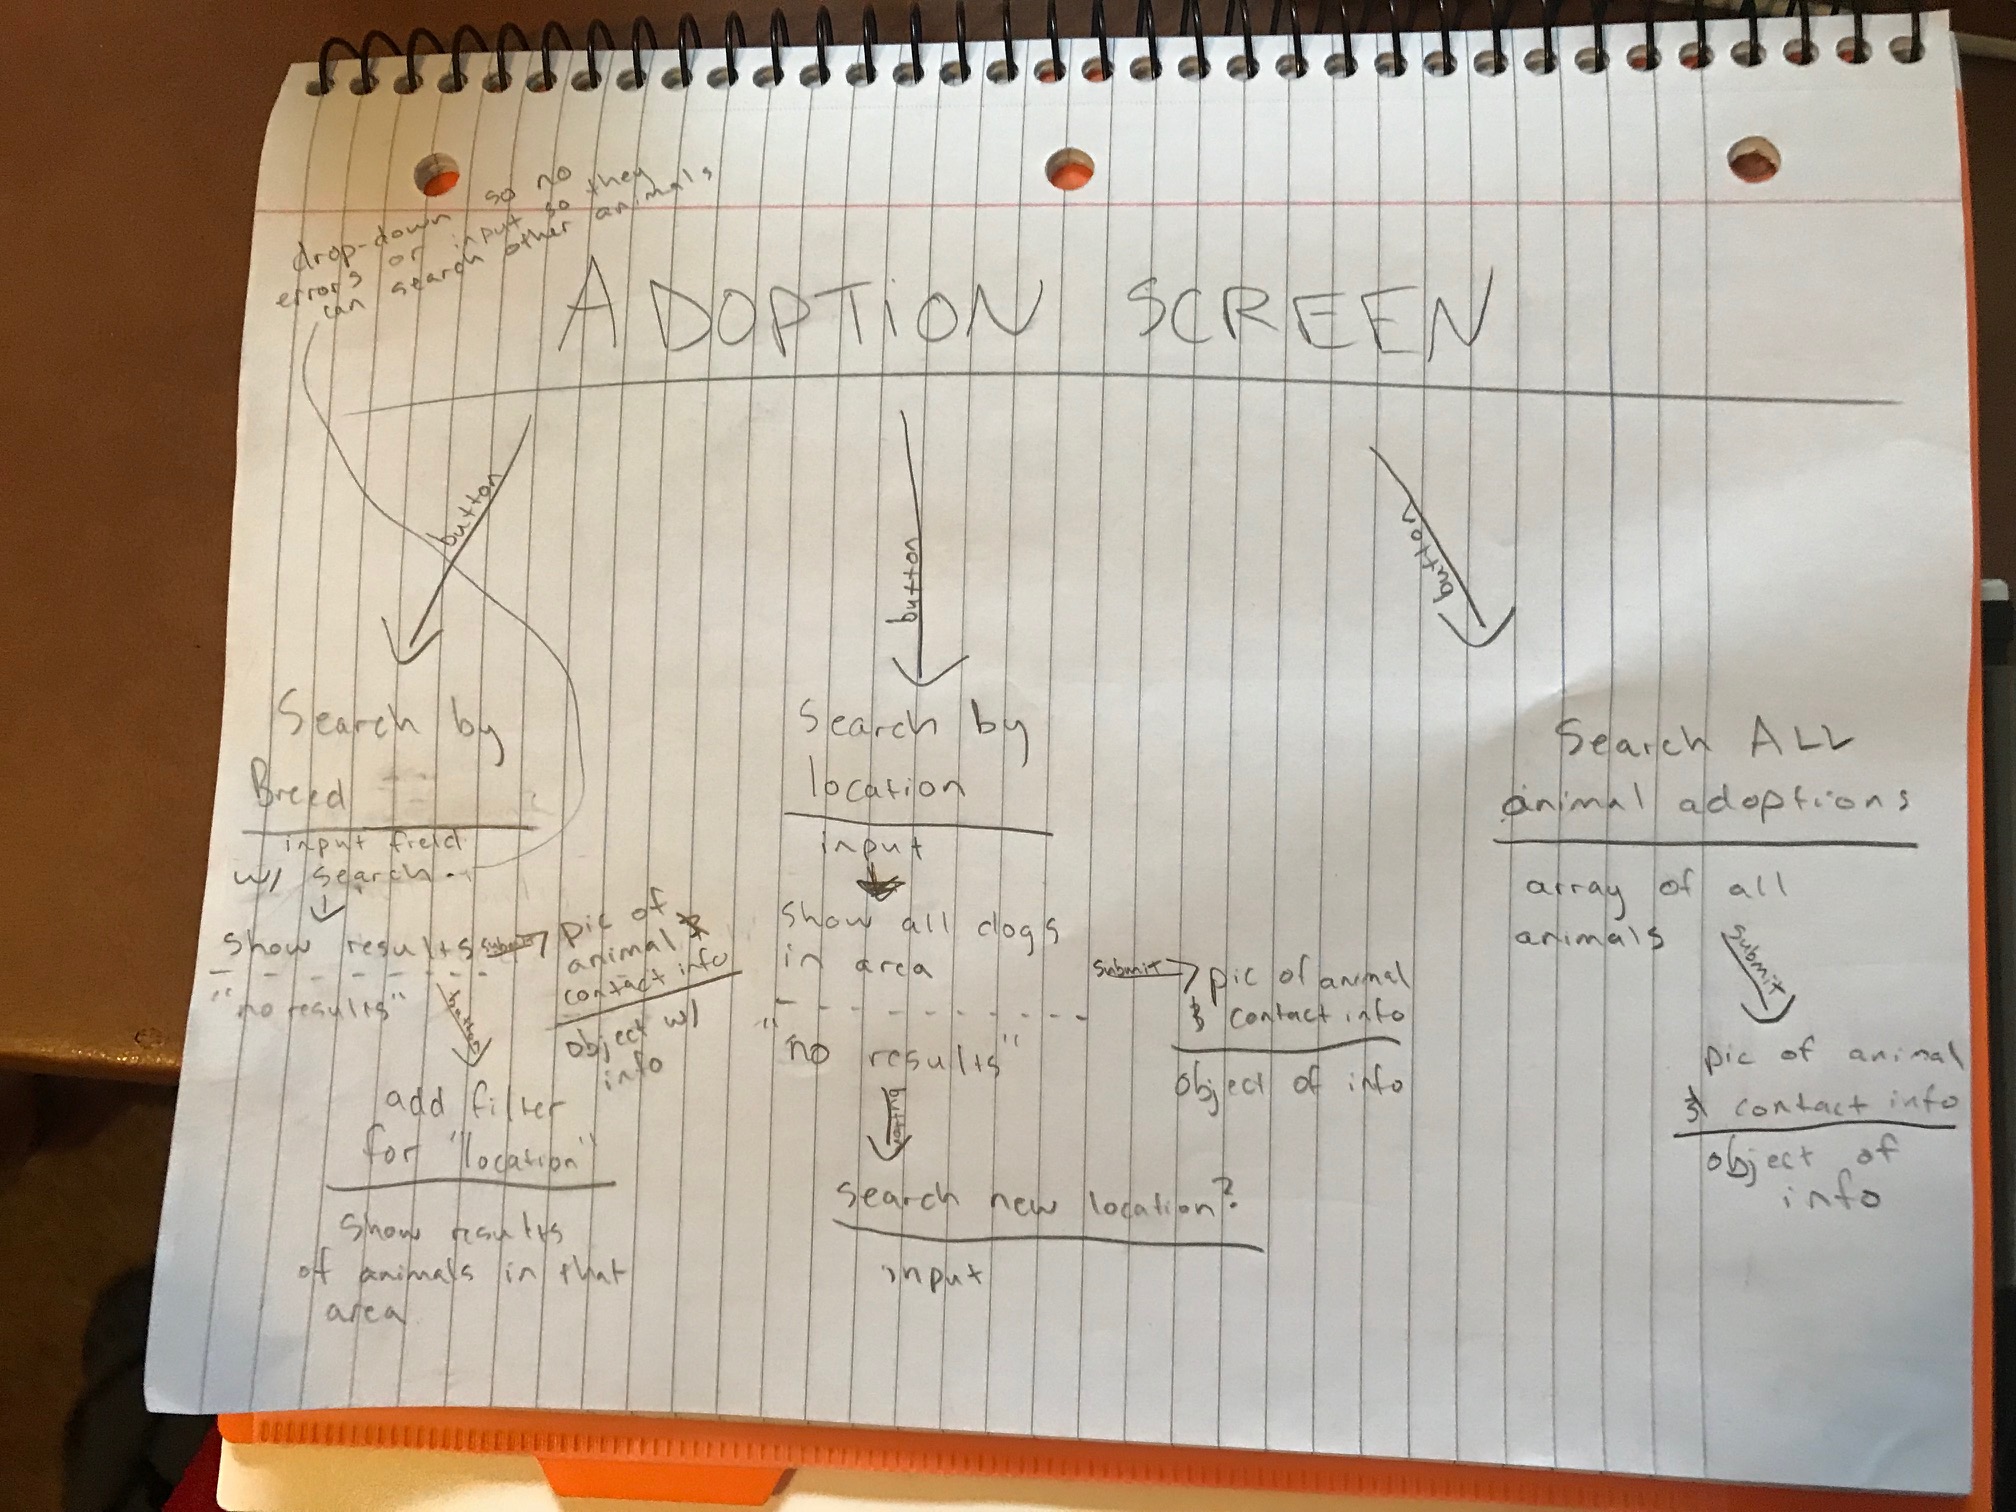 drop-down so no
errors or input so they
can search other animals
ADOPTION SCREEN
button
button
button
Search by
Breed
input field
w/ search
show results
"no results"
submit
pic of
animal &
contact info
object w/
info
button
add filter
for "location"
show results
of animals in that
area
Search by
location
input
show all dogs
in area
"no results"
submit
pic of animal
& contact info
object of info
button
search new location?
input
Search ALL
animal adoptions
array of all
animals
submit
pic of animal
& contact info
object of
info